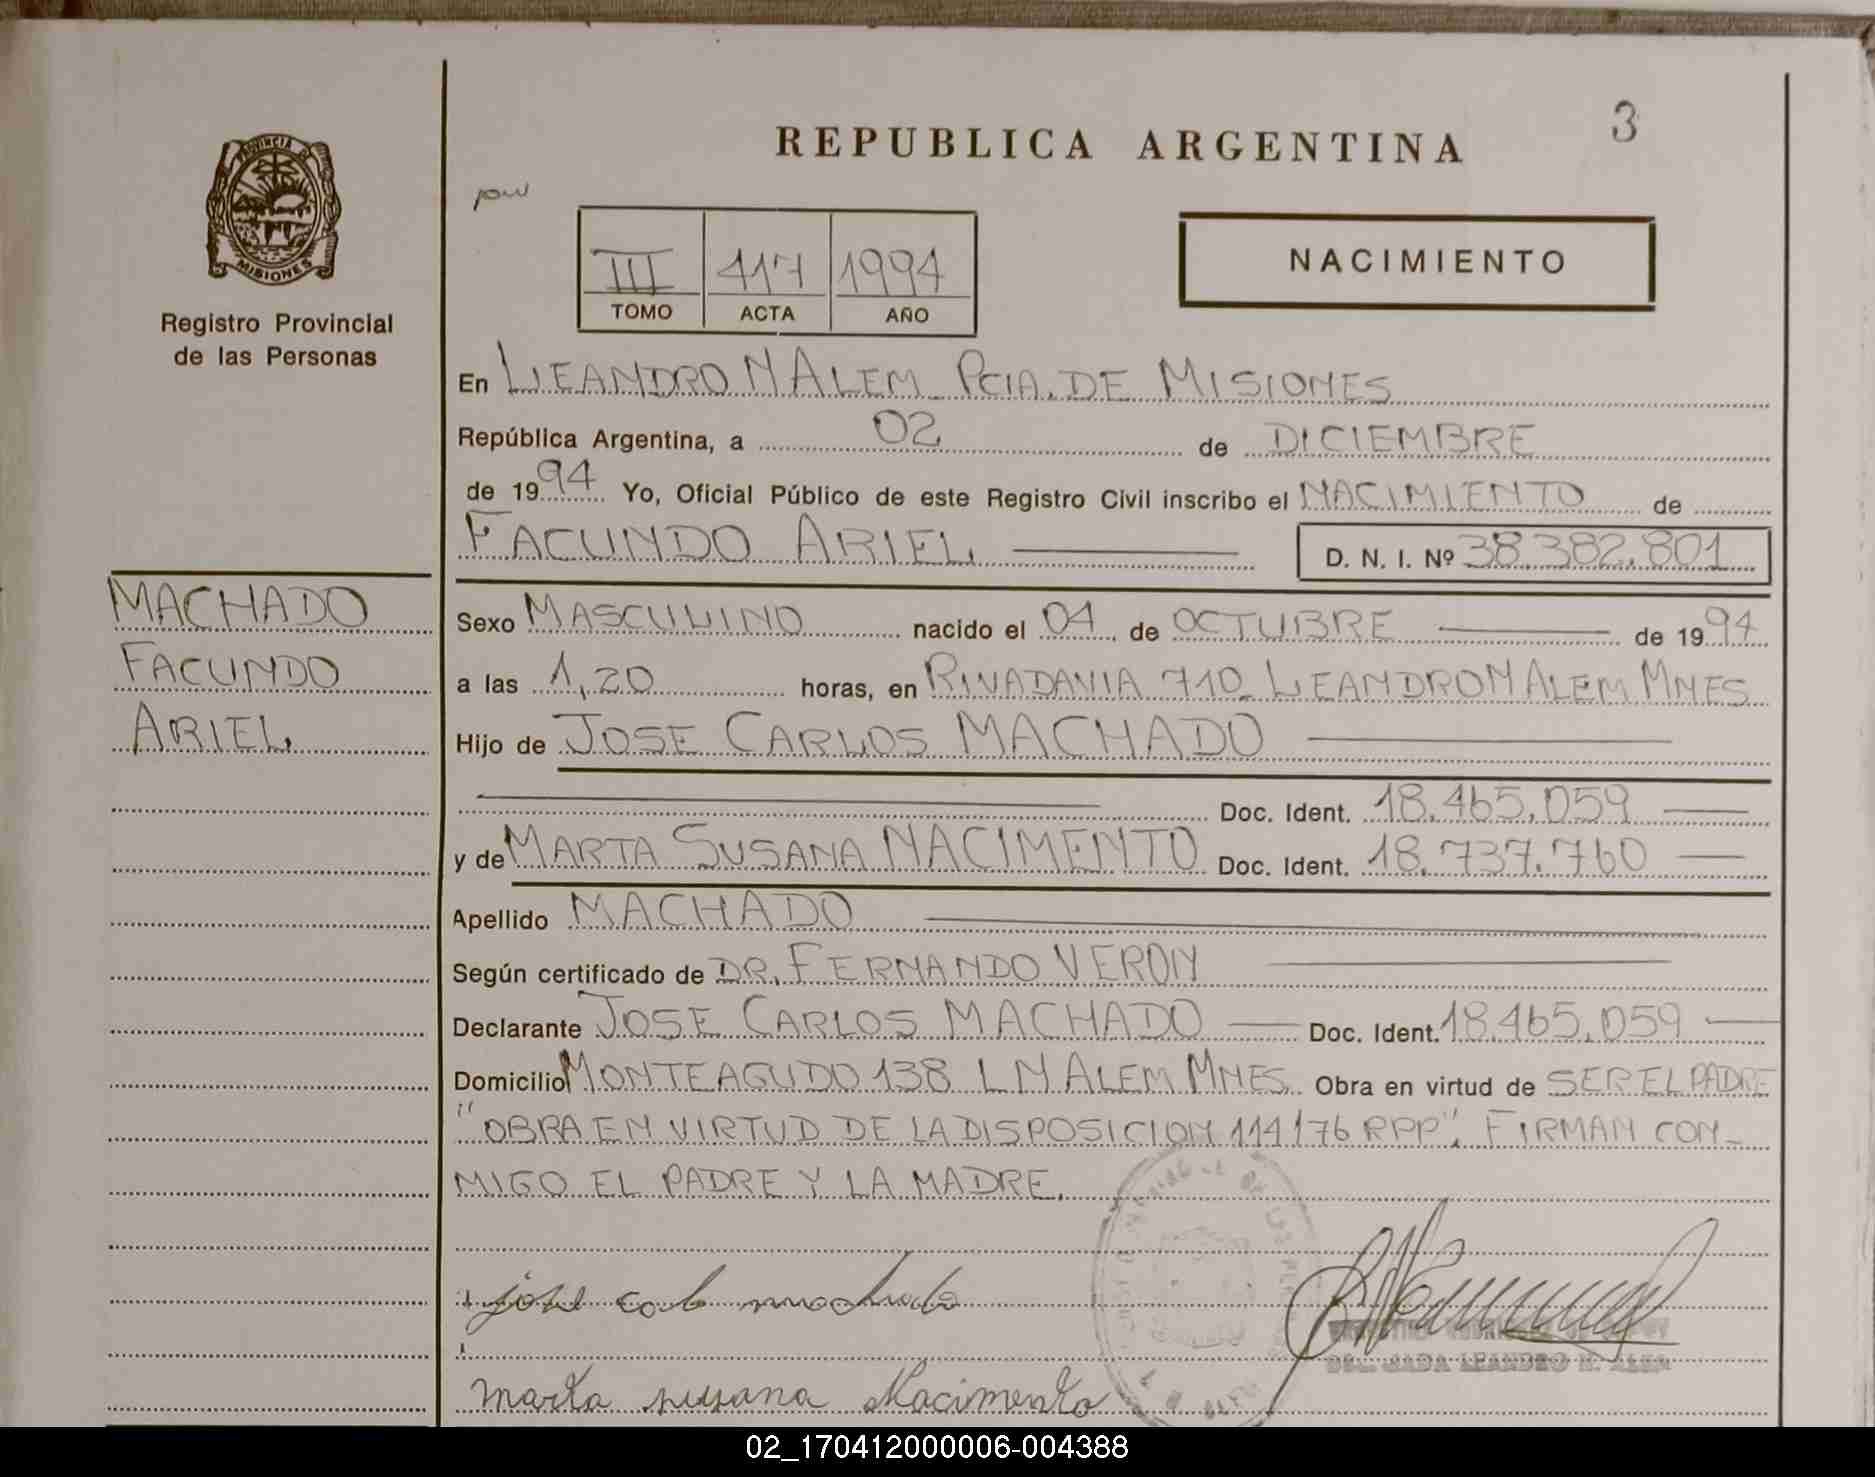 3
REPUBLICA ARGENTINA
PROVINCIA DE
MISIONES
Registro Provincial
de las Personas
III 417 1994
TOMO ACTA AÑO
NACIMIENTO
En LEANDRO N ALEM PCIA. DE MISIONES
República Argentina, a 02 de DICIEMBRE
de 1994 Yo, Oficial Público de este Registro Civil inscribo el NACIMIENTO de
FACUNDO ARIEL D. N. I. Nº 38.382.801
MACHADO
FACUNDO
ARIEL
Sexo MASCULINO nacido el 04 de OCTUBRE de 1994
a las 1,20 horas, en RIVADAVIA 710 LEANDRO N ALEM MNES
Hijo de JOSE CARLOS MACHADO
Doc. Ident. 18.465.059
y de MARTA SUSANA NACIMENTO Doc. Ident. 18.737.760
Apellido MACHADO
Según certificado de DR. FERNANDO VERON
Declarante JOSE CARLOS MACHADO Doc. Ident. 18.465.059
Domicilio MONTEAGUDO 138 L N ALEM MNES. Obra en virtud de SER EL PADRE
"OBRA EN VIRTUD DE LA DISPOSICION 114/76 RPP". FIRMAN CON-
MIGO EL PADRE Y LA MADRE.
jose machado
marta susana Nacimento
LEANDRO N. ALEM
02_170412000006-004388